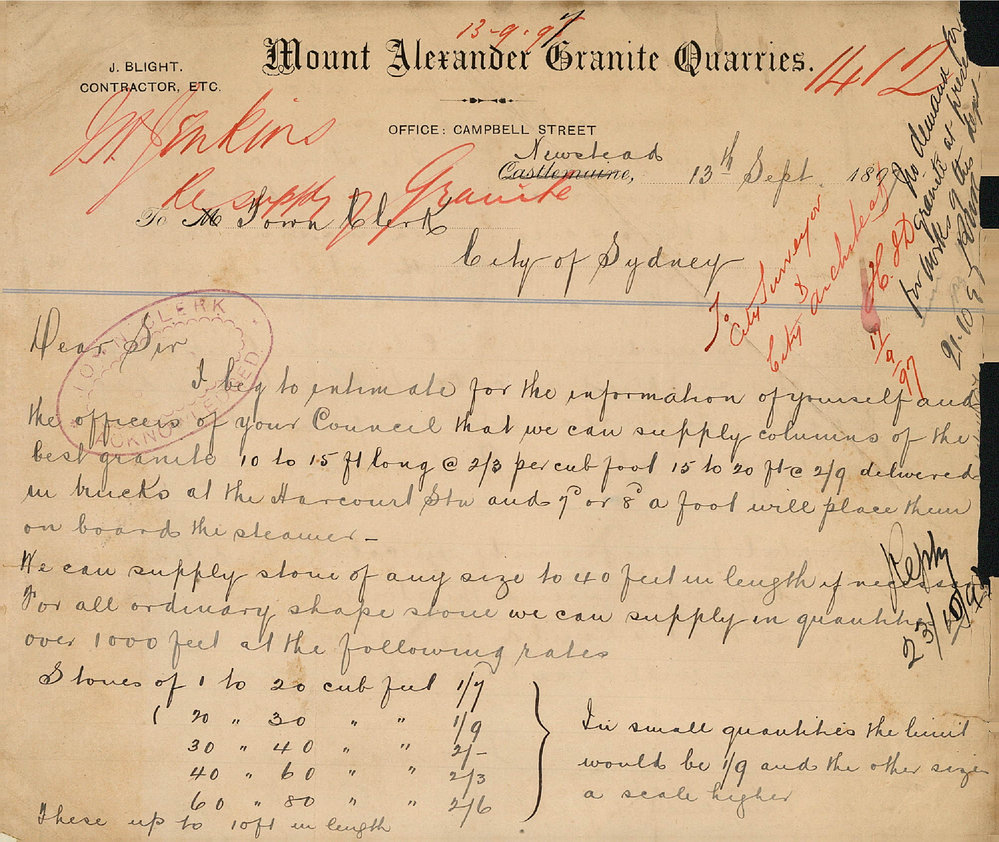 13-9-97
Mount Alexander Granite Quarries.
1412
J. BLIGHT.
CONTRACTOR, ETC.
Jenkins
OFFICE: CAMPBELL STREET
Newstead
Castlemaine, 13th Sept. 189
Re supply of Granite
To Town Clerk
City of Sydney
To
City Surveyor
&
City Architect
17/9/97
No demand for
granite at present
for works of this dept
21.10.97
TOWN CLERK
ACKNOWLEDGED
Dear Sir
I beg to intimate for the information of yourself and
the officers of your Council that we can supply columns of the
best granite 10 to 15 ft long @ 2/3 per cub foot 15 to 20 ft @ 2/9 delivered
in trucks at the Harcourt Stn and 7d or 8d a foot will place them
on board the steamer –
We can supply stone of any size to 40 feet in length if necess
For all ordinary shape stone we can supply in quantiti
over 1000 feet at the following rates
Reply
23/10/97
Stones of 1 to 20 cub feet 1/7
20 " 30 " " 1/9
30 " 40 " " 2/-
40 " 60 " " 2/3
60 " 80 " " 2/6
These up to 10ft in length
In small quantities the limit
would be 1/9 and the other size
a scale higher